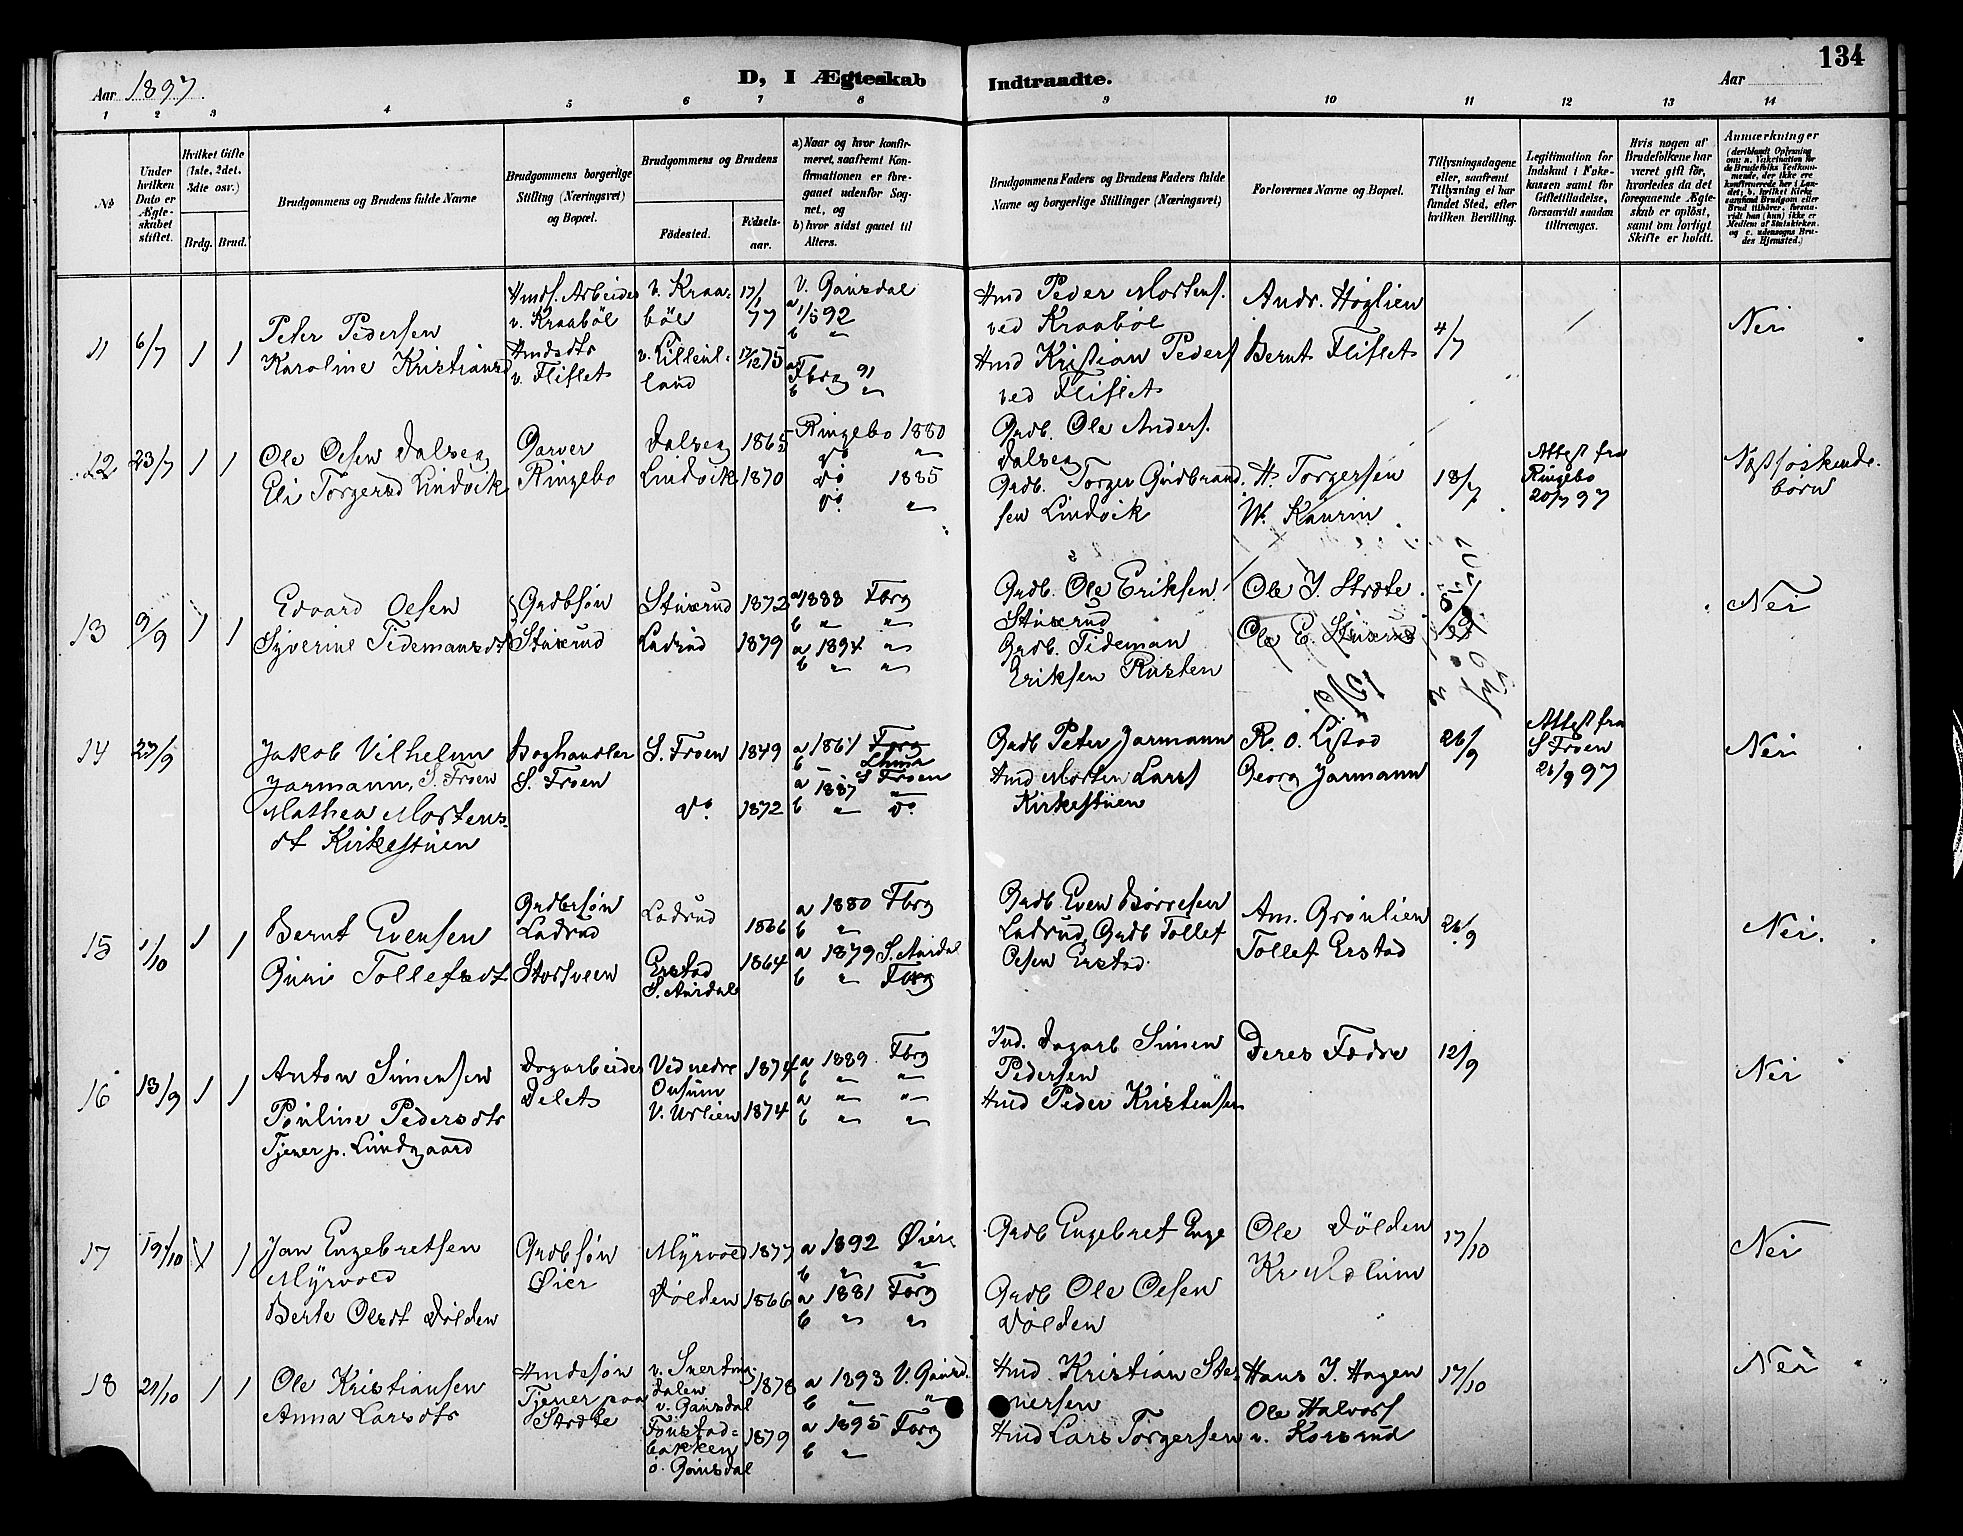 134
Aar 1897.
D, I Ægteskab Indtraadte.
Aar
1 2 3 4 5 6 7 8 9 10 11 12 13 14
No
Under hvilken Dato er Ægteskabet stiftet.
Hvilket Gifte (1ste, 2det, 3dte osv.)
Brdg. Brud.
Brudgommens og Brudens fulde Navne
Brudgommens borgerlige Stilling (Næringsvei) og Bopæl.
Brudgommens og Brudens
Fødested.
Fødselsaar.
a) Naar og hvor konfirmeret, saafremt Konfirmationen er foregaaet udenfor Sognet, og
b) hvor sidst gaaet til Alters.
Brudgommens Faders og Brudens Faders fulde Navne og borgerlige Stillinger (Næringsvei)
Forlovernes Navne og Bopæl.
Tillysningsdagene eller, saafremt Tillysning ei har fundet Sted, efter hvilken Bevilling.
Legitimation for Indskud i Enkekassen samt for Giftetilladelse, forsaavidt saadan tiltrænges.
Hvis nogen af Brudefolkene har været gift før, hvorledes da det foregaaende Ægteskab er opløst, samt om lovligt Skifte er holdt.
Anmærkninger
11 6/7 1 1
Peter Pedersen
Karoline Kristiansd
Hmds. Arbeider
v. Kraabøl
Hmdsdtr
v. Fliflet
v. Kraabøl 17/1 77
v. Lillehland 17/12 75
V. Gausdal
a 1/5 92
b "
a Fbrg 91
b "
Hmd Peder Mortens.
ved Kraabøl
Hmd Kristian Peders
ved Fliflet
Andr. Høglien
Bernt Fliflet
4/7
Nei
12 23/7 1 1
Ole Olsen Dalseg
Eli Torgersd Lindvik
Garver
Ringebo
Dalseg 1865
Lindvik 1870
Ringebo 1880
do "
do 1885
do "
Grdb. Ole Anders.
Dalseg
Grdb. Torger Gudbrandsen Lindvik
H. Torgersen
W. Kaurin
18/7
Attest fra
Ringebo
20/7 97
Næssøskendebørn
13 9/9 1 1
Edvard Olsen
Syverine Tidemansdt
Grdbsøn
Stuxrud
Stuxrud 1872
Ladrud 1879
a 1888 Fbrg
b " "
a 1894 "
b " "
Grdb. Ole Eriksen
Stuxrud
Grdb. Tideman
Eriksen Rusten
Ole J. Strøte
Ole E. Stuxrud
Nei
14 29/9
Jakob Vilhelm
Jormann, S. Froen
Mathea Mortensdt Kirkestuen
Boghandler
S. Froen
S. Froen 1849
do 1872
a 1861 Fbrg
a 1887 S Froen
b " do
Grdb Peter Jormann
Hmd Morten Larss
Kirkestuen
R. O. Listad
Georg Jormann
26/9
Attest fra
S Froen
21/9 97
Nei
15 1/10 1 1
Bernt Evensen
Guri Tollefsdt
Grdbrsøn
Ladrud
Storsveen
Ladrud 1866
Erstad 1864
S. Aurdal
a 1880 Fbrg
b "
a 1879 S. Aurdal
b " Fbrg
Grdb. Even Børresen
Ladrud, Grdb Tollef
Olsen Erstad
Am. Grønlien
Tollef Erstad
26/9
Nei.
16 13/9 1 1
Anton Simensen
Pauline Pedersdtr
Tjener p. Lundgaard
Dagarbeider
Delet
Ved nedre 1874
Onsum
V. Urlien 1874
a 1889 Fbrg
b " "
a " "
b " "
Ind. Dagarb Simen
Pedersen
Hmd Peder Kristensen
Deres Fædre
12/9
Nei
17 19/10 1 1
Jan Engebretsen
Myrvold
Berte Olsdt Dølden
Grdbsøn
Øier
Myrvold 1877
Dølden 1866
a 1892 Øier
b " "
a 1881 Fbrg
b " "
Grdb Engebret Enge
Grdb Ole Olsen
Dølden
Ole Dølden
17/10
Nei
18 21/10 1 1
Ole Kristiansen
Anna Larsdtr
Hmdssøn
Tjener paa
Strøte
v. Svertingdalen 1878
v. Gausdal
Fonstadbakken 1879
ø. Gausdal
a 1893 V. Gausd.
b " "
a 1895 Fbrg
b "
Hmd Kristian Stenersen
Hmd Lars Torgersen
Hans J. Hagen
Ole Halvors
v. Korsrud
17/10
Nei